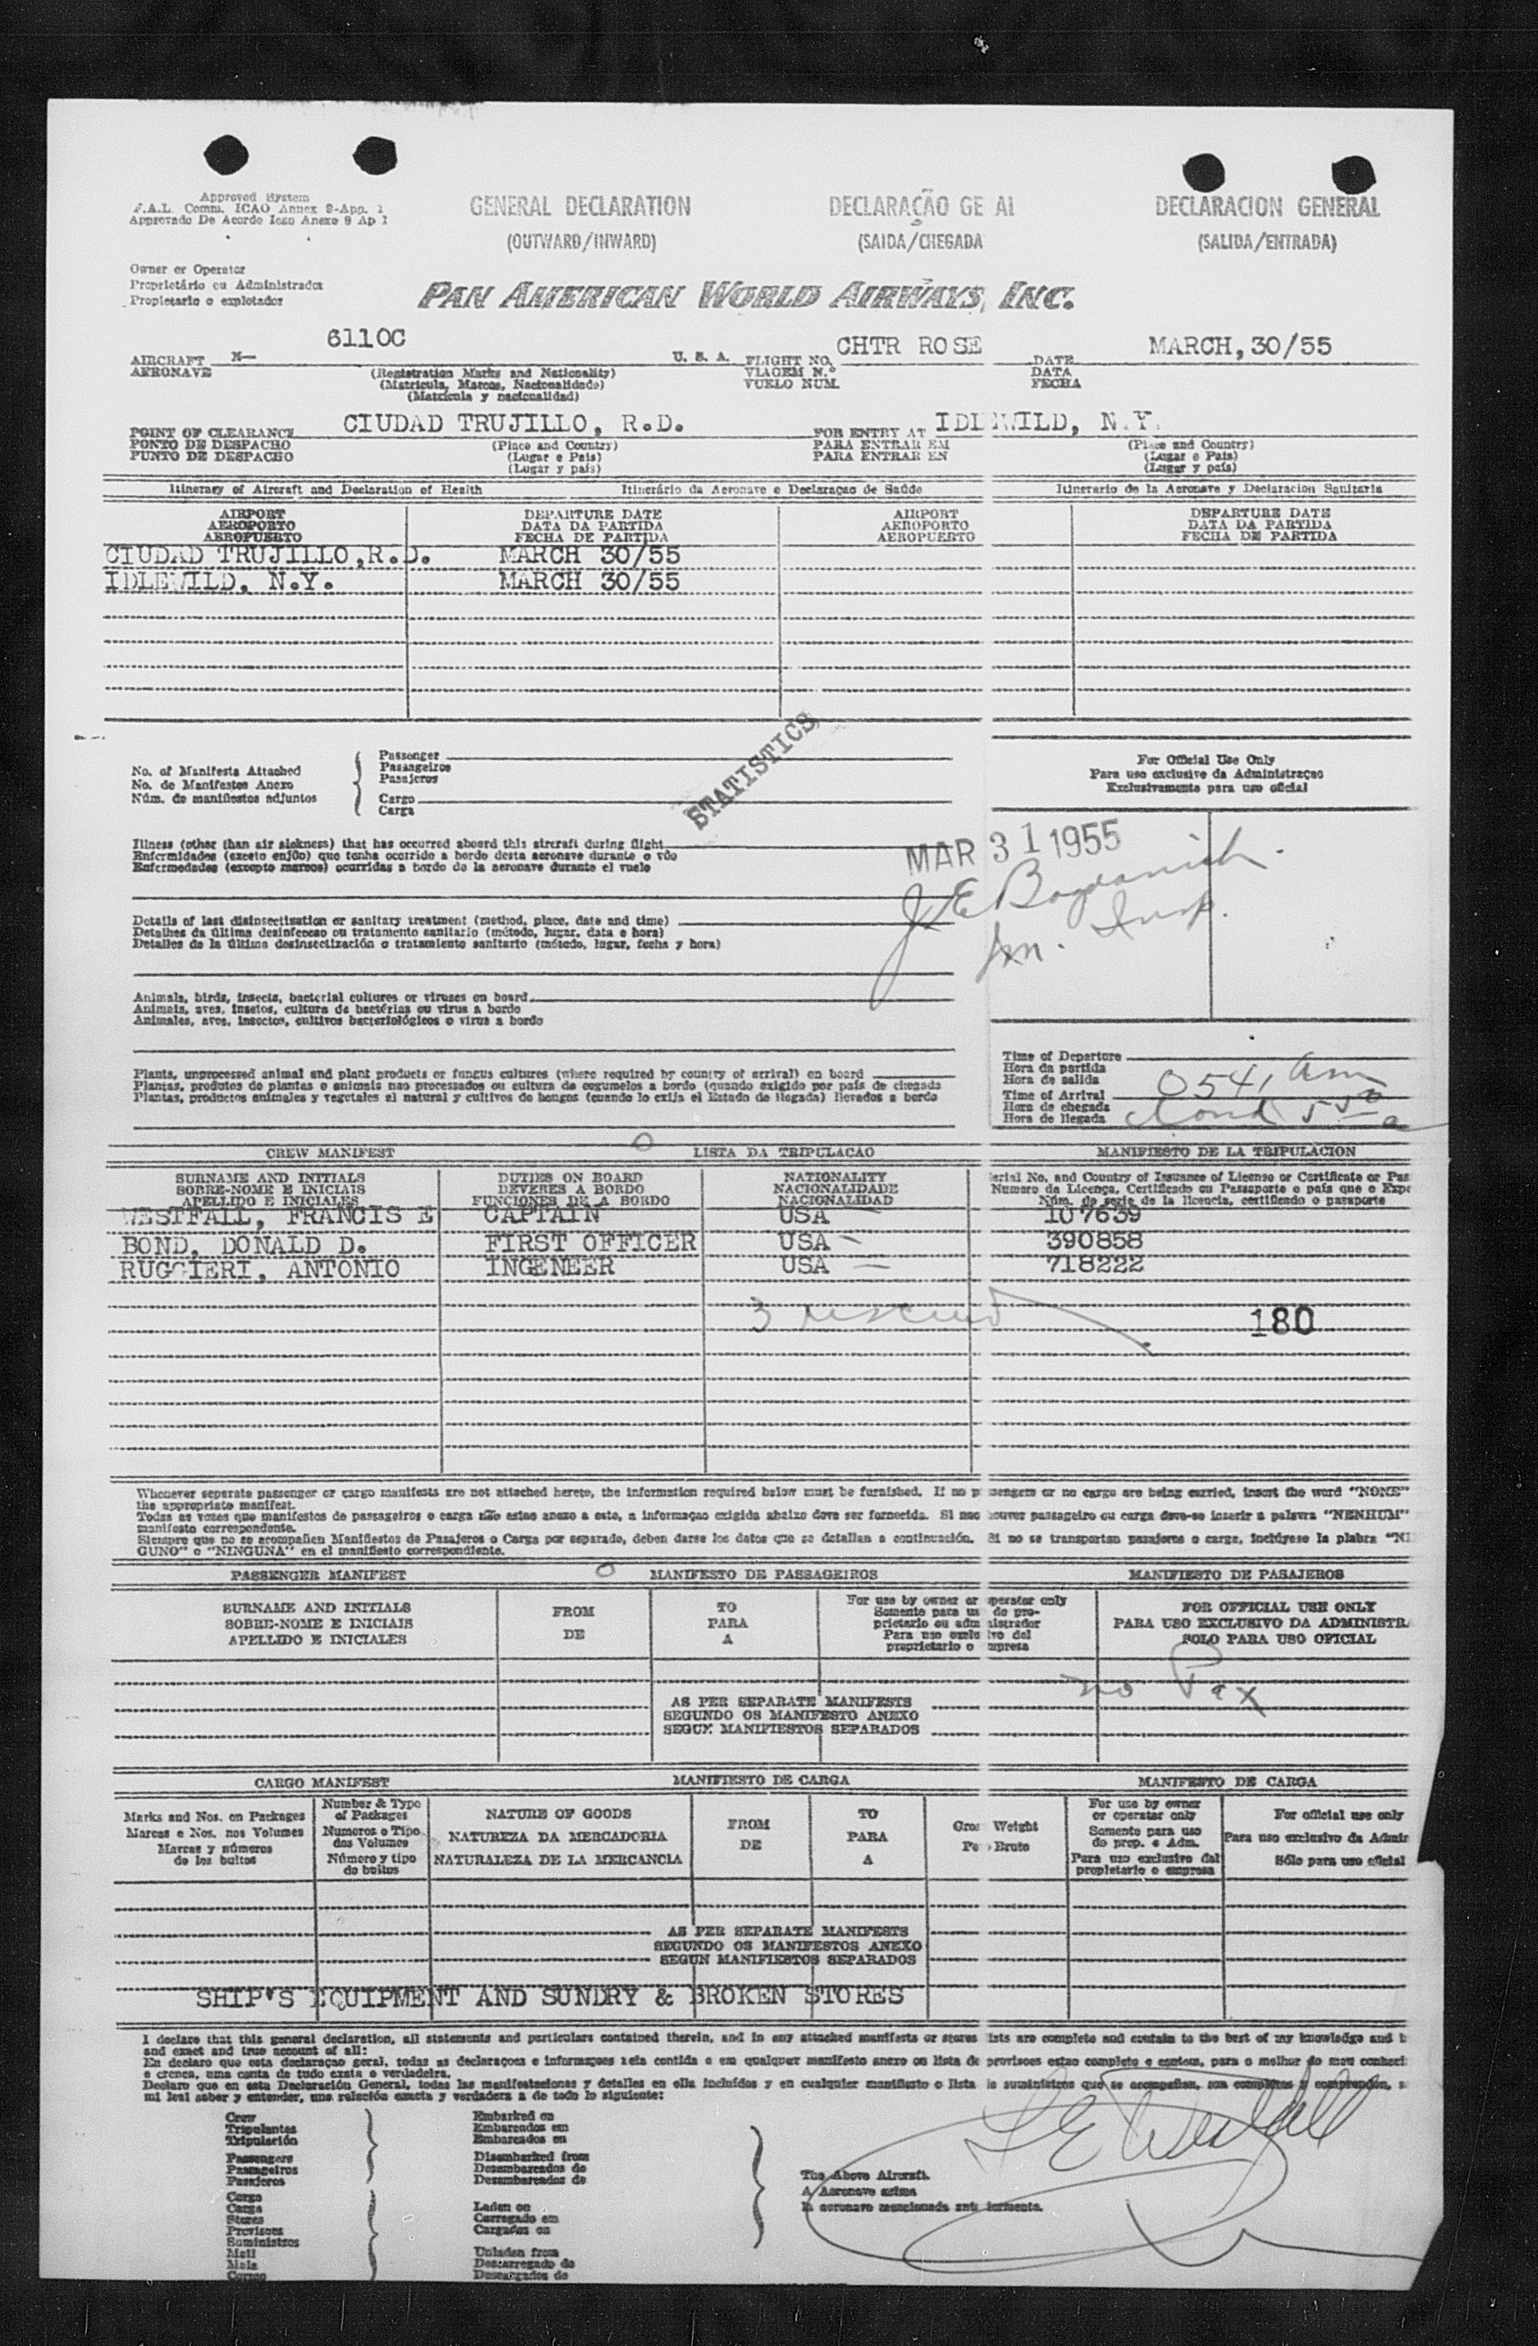 Approved System
F.A.L. Comm. ICAO Annex 9-App. 1
Aprovado De Acordo Icao Anexo 9 Ap 1
GENERAL DECLARATION
(OUTWARD/INWARD)
DECLARAÇÃO GE AL
(SAIDA/CHEGADA
DECLARACION GENERAL
(SALIDA/ENTRADA)
Owner or Operator
Proprietário ou Administrador
Propietario o explotador
PAN AMERICAN WORLD AIRWAYS, INC.
AIRCRAFT N— 6110C U. S. A. FLIGHT NO. CHTR ROSE DATE MARCH,30/55
AERONAVE (Registration Marks and Nationality) VIAGEM N.º DATA
(Matricula, Marcas, Nacionalidade) VUELO NUM. FECHA
(Matricula y nacionalidad)
POINT OF CLEARANCE CIUDAD TRUJILLO, R.D. FOR ENTRY AT IDLEWILD, N.Y.
PONTO DE DESPACHO (Place and Country) PARA ENTRAR EM (Place and Country)
PUNTO DE DESPACHO (Lugar e Pais) PARA ENTRAR EN (Lugar e Pais)
(Lugar y país) (Lugar y país)
Itinerary of Aircraft and Declaration of Health Itinerário da Aeronave e Declaraçao de Saúde Itinerario de la Aeronave y Declaracion Sanitaria
AIRPORT DEPARTURE DATE AIRPORT DEPARTURE DATE
AEROPORTO DATA DA PARTIDA AEROPORTO DATA DA PARTIDA
AEROPUERTO FECHA DE PARTIDA AEROPUERTO FECHA DE PARTIDA
CIUDAD TRUJILLO,R.D. MARCH 30/55
IDLEWILD, N.Y. MARCH 30/55
STATISTICS
No. of Manifests Attached
No. de Manifestos Anexo
Núm. de manifiestos adjuntos
Passenger
Passageiros
Pasajeros
Cargo
Carga
For Official Use Only
Para uso exclusivo da Administraçao
Exclusivamente para uso oficial
Illness (other than air sickness) that has occurred aboard this aircraft during flight
Enfermidades (exceto enjôo) que tenha ocorrido a bordo desta aeronave durante o vôo
Enfermedades (excepto mareos) ocurridas a bordo de la aeronave durante el vuelo
MAR 31 1955
J E Bogdanich
Im. Insp.
Details of last disinsectisation or sanitary treatment (method, place, date and time)
Detalhes da última desinfeccao ou tratamento sanitario (método, lugar, data e hora)
Detalles de la última desinsectización o tratamiento sanitario (método, lugar, fecha y hora)
Animals, birds, insects, bacterial cultures or viruses on board
Animais, aves, insetos, cultura de bactérias ou virus a bordo
Animales, aves, insectos, cultivos bacteriológicos o virus a bordo
Plants, unprocessed animal and plant products or fungus cultures (where required by country of arrival) on board
Plantas, produtos de plantas e animais nao processados ou cultura de cogumelos a bordo (quando exigido por pais de chegada
Plantas, productos animales y vegetales al natural y cultivos de hongos (cuando lo exija el Estado de llegada) llevados a bordo
Time of Departure
Hora da partida
Hora de salida
Time of Arrival 0541 am
Hora de chegada
Hora de llegada
CREW MANIFEST LISTA DA TRIPULACAO MANIFIESTO DE LA TRIPULACION
SURNAME AND INITIALS DUTIES ON BOARD NATIONALITY Serial No. and Country of Issuance of License or Certificate or Pas
SOBRE-NOME E INICIAIS DEVERES A BORDO NACIONALIDADE Numero da Licença, Certificado ou Passaporte o país que o Expe
APELLIDO E INICIALES FUNCIONES DE A BORDO NACIONALIDAD Núm. de serie de la licencia, certificado o pasaporte
WESTFALL, FRANCIS E CAPTAIN USA 107639
BOND, DONALD D. FIRST OFFICER USA 390858
RUGGIERI, ANTONIO INGENEER USA 718222
3
180
Whenever separate passenger or cargo manifests are not attached hereto, the information required below must be furnished. If no passengers or no cargo are being carried, insert the word "NONE"
the appropriate manifest.
Todas as vezes que manifestos de passageiros o carga não estao anexo a este, a informaçao exigida abaixo deve ser fornecida. Si nao houver passageiro ou carga deve-se inserir a palavra "NENHUM"
manifesto correspondente.
Siempre que no se acompañen Manifiestos de Pasajeros o Carga por separado, deben darse los datos que se detallan a continuación. Si no se transportan pasajeros o carga, inclúyese la plabra "NI
GUNO" o "NINGUNA" en el manifiesto correspondiente.
PASSENGER MANIFEST MANIFESTO DE PASSAGEIROS MANIFIESTO DE PASAJEROS
SURNAME AND INITIALS FROM TO For use by owner or operator only FOR OFFICIAL USE ONLY
SOBRE-NOME E INICIAIS DE PARA Somente para uso do pro- PARA USO EXCLUSIVO DA ADMINISTRA
APELLIDO E INICIALES A prietario ou administrador SOLO PARA USO OFICIAL
Para uso exclusivo del
proprietario o empresa
no Pax
AS PER SEPARATE MANIFESTS
SEGUNDO OS MANIFESTO ANEXO
SEGUN MANIFIESTOS SEPARADOS
CARGO MANIFEST MANIFIESTO DE CARGA MANIFESTO DE CARGA
Marks and Nos. on Packages
Marcas e Nos. nos Volumes
Marcas y números
de los bultos
Number & Type
of Packages
Numeros e Tipo
dos Volumes
Número y tipo
de bultos
NATURE OF GOODS
NATUREZA DA MERCADORIA
NATURALEZA DE LA MERCANCIA
FROM
DE
TO
PARA
A
Gros Weight
Pe Bruto
For use by owner
or operator only
Somente para uso
do prop. e Adm.
Para uso exclusivo del
propietario o empresa
For official use only
Para uso exclusivo da Admin
Sólo para uso oficial
AS PER SEPARATE MANIFESTS
SEGUNDO OS MANIFESTOS ANEXO
SEGUN MANIFIESTOS SEPARADOS
SHIP'S EQUIPMENT AND SUNDRY & BROKEN STORES
I declare that this general declaration, all statements and particulars contained therein, and in any attached manifests or stores lists are complete and contain to the best of my knowledge and b
and exact and true account of all:
En declaro que esta declaraçao geral, todas as declaraçoes e informaçoes nela contida e em qualquer manifesto anexo ou lista de provisoes estao completo e contem, para o melhor do meu conheci
e crenca, uma conta de tudo exata e verdadeira.
Declaro que en esta Declaración General, todas las manifestaciones y detalles en ella incluídos y en cualquier manifiesto o lista de suministros que se acompañan, son completos y comprenden, s
mi leal saber y entender, una relación exacta y verdadera a de todo lo siguiente:
F E Westfall
Crew
Tripulantes
Tripulación
Passengers
Passageiros
Pasajeros
Cargo
Carga
Stores
Provisoes
Suministros
Mail
Mala
Correo
Embarked on
Embarcados em
Embarcados en
Disembarked from
Desembarcados de
Desembarcados de
Laden on
Carregado em
Cargados en
Unladen from
Descarregado de
Descargados de
The Above Aircraft.
A Aeronave acima
la aeronave mencionada anteriormente.